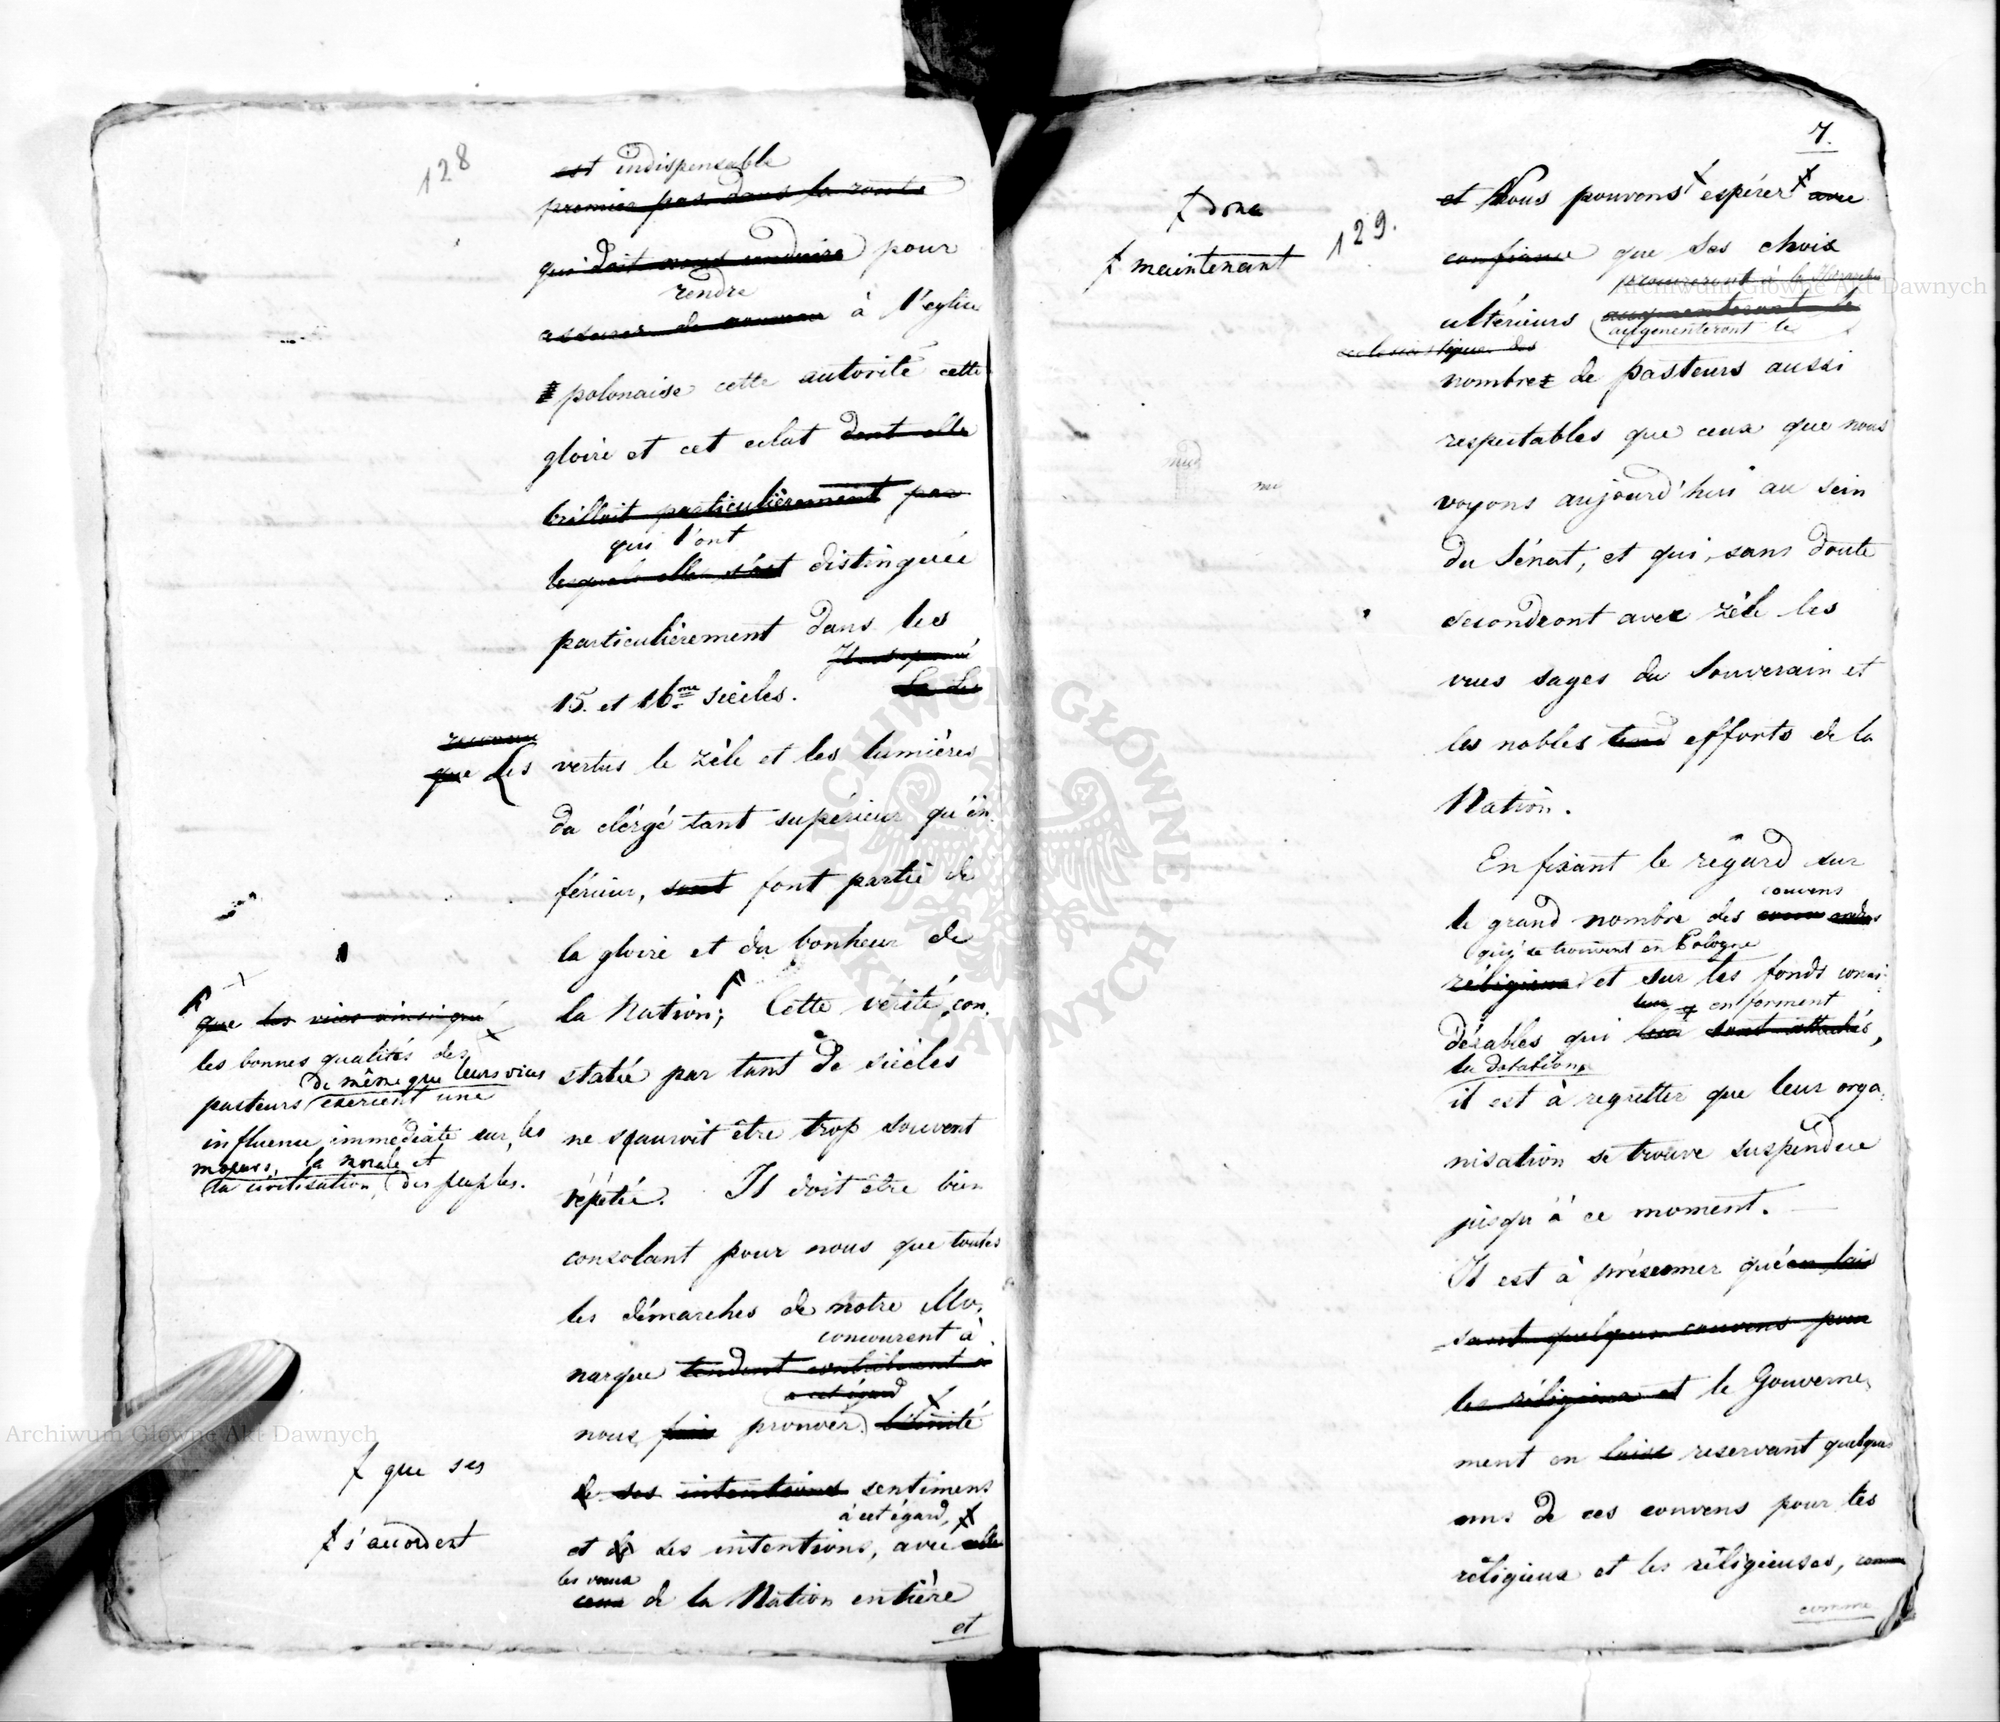 128
est indispensable
premier pas dans la route
qui doit nous conduire pour
rendre
assurer de nouveau à l'eglise
polonaise cette autorité cette
gloire et cet eclat dont elle
brilloit particulièrement par
qui l'ont
lesquels elle s'est distinguée
particulièrement dans les
15. et 16me siècles.
que Les vertus le zèle et les lumières
du clérgé tant supérieur qu'in
férieur, sont font partie de
la gloire et du bonheur de
la Nation; Cette vérité, con,
statée par tant de siécles
ne sçauroit être trop souvent
répétée. Il doit être bien
consolant pour nous que toutes
les démarches de notre Mo,
concourent à
narque tendent contribuent à
a cet égard
nous prouver l'unité
de ses intentions sentimens
à cet égard,
et de ses intentions, avec celles
les voeux
ceux de la Nation entière
et
que les vices ainsi que
les bonnes qualités des
de même que leurs vices
pasteurs exercent une
influence immédiate sur les
moeurs, la morale et
la civilisation des peuples.
que ses
s'accordent
7.
129.
donc
maintenant
et Nous pouvons espérer avec
confiance que ses choix
procureront à la Hierarchie
ultérieurs augmenteront le
augmenteront le
ecclesiastique des
nombre de pasteurs aussi
respectables que ceux que nous
voyons aujourd'hui au sein
du Sénat, et qui, sans doute
secondront avec zèle les
vues sages du Souverain et
les nobles efforts de la
Nation.
En fixant le régard sur
couvens
le grand nombre des
qui se trouvent en Pologne
réligieux et sur les fonds consi,
en forment
dérables qui leur sont attachés,
la dotation
il est à regretter que leur orga,
nisation se trouve suspendue
jusqu'à ce moment.
Il est à présumer qu'en lais
sant quelques couvens pour
les réligieux et le Gouverne,
ment en reservant quelques
uns de ces couvens pour les
réligieux et les réligieuses, comme
comme
Archiwum Główne Akt Dawnych
Archiwum Główne Akt Dawnych
ARCHIWUM GŁÓWNE AKT DAWNYCH